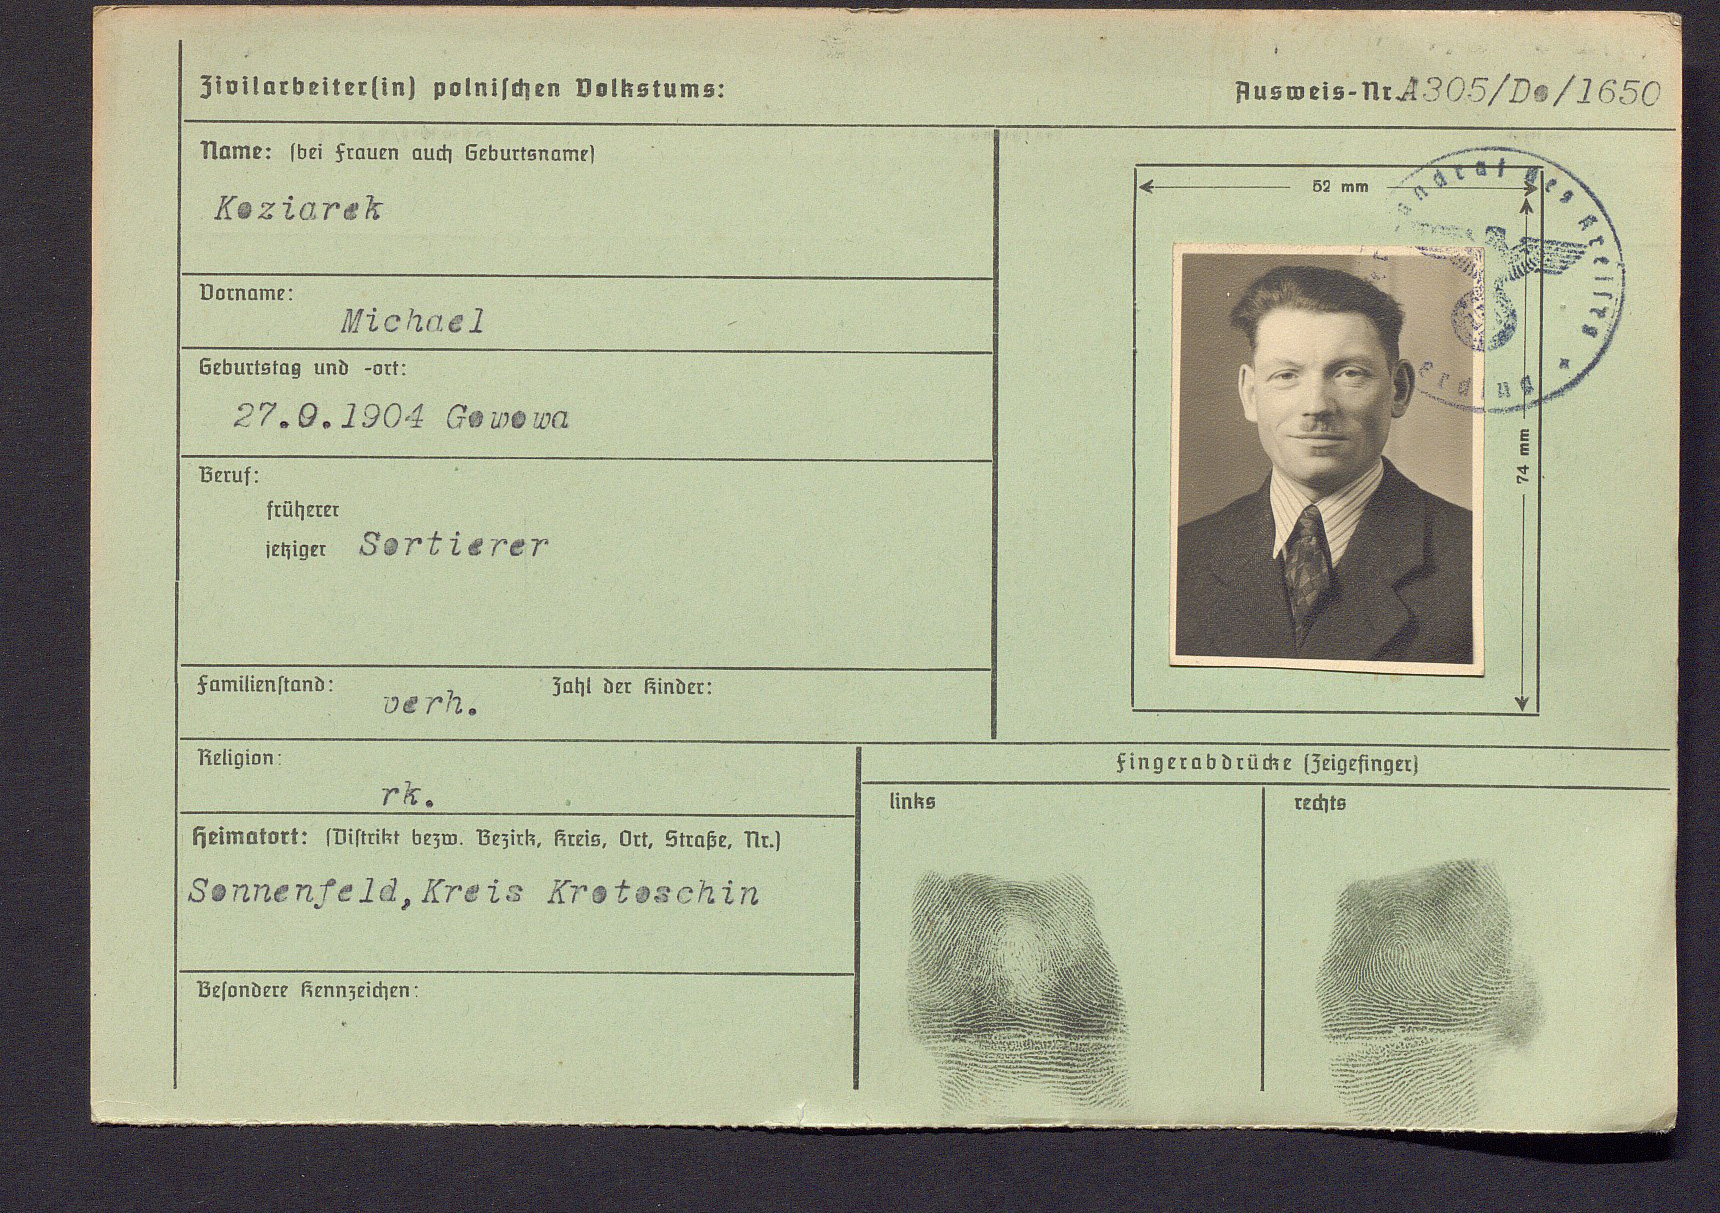 Zivilarbeiter(in) polnischen Volkstums:
Ausweis-Nr. A305/Do/1650
Name: (bei Frauen auch Geburtsname)
Koziarek
Vorname:
Michael
Geburtstag und -ort:
27.9.1904 Gowowa
Beruf:
früherer
jetziger Sortierer
Familienstand: verh. Zahl der Kinder:
Religion:
rk.
Heimatort: (Distrikt bezw. Bezirk, Kreis, Ort, Straße, Nr.)
Sonnenfeld, Kreis Krotoschin
Besondere Kennzeichen:
52 mm
74 mm
Landrat des Kreises
Erding
Fingerabdrücke (Zeigefinger)
links
rechts